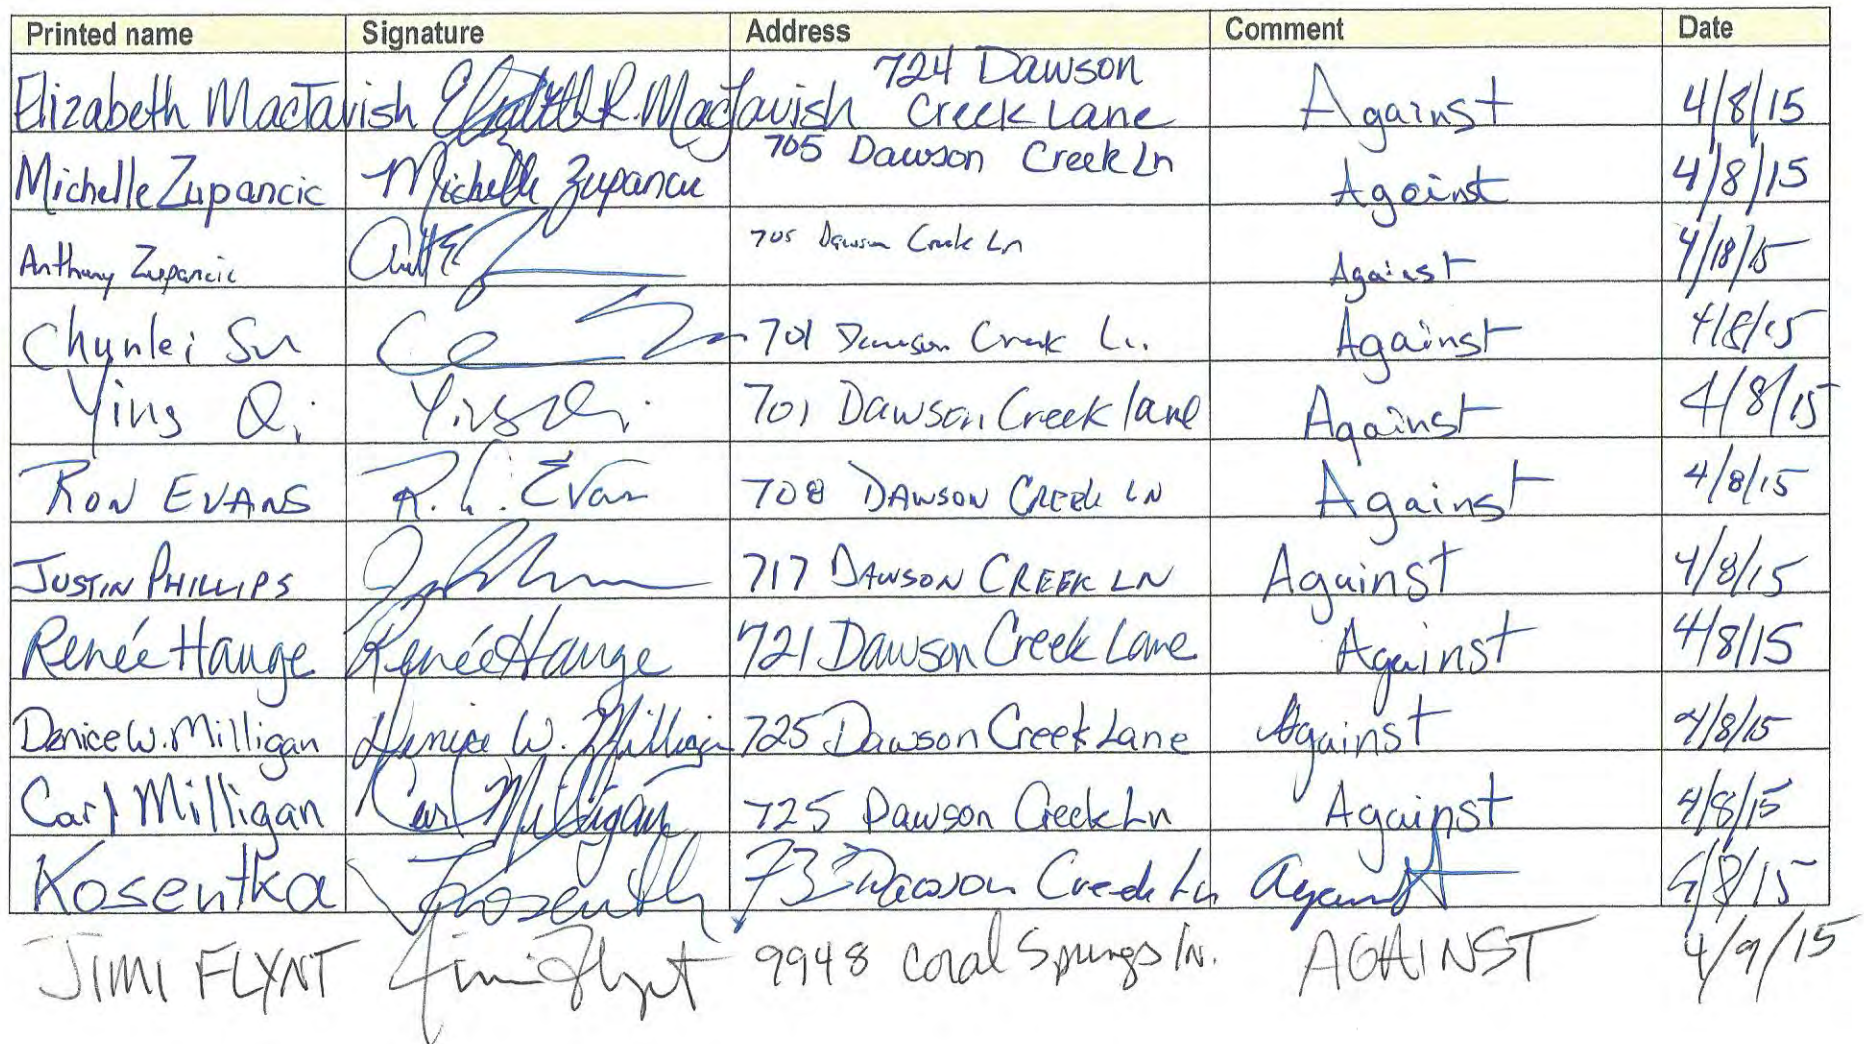 Printed name Signature Address Comment Date
Elizabeth MacTavish Elizabeth R. MacTavish 724 Dawson Creek Lane Against 4/8/15
Michelle Zupancic Michelle Zupancic 705 Dawson Creek Ln Against 4/8/15
Anthony Zupancic 705 Dawson Creek Ln Against 4/18/15
Chunlei Su 701 Dawson Creek Ln. Against 4/8/15
Ying Qi Ying Qi 701 Dawson Creek lane Against 4/8/15
RON EVANS R. L. Evans 708 DAWSON CREEK LN Against 4/8/15
JUSTIN PHILLIPS 717 DAWSON CREEK LN Against 4/8/15
Renée Hauge Renée Hauge 721 Dawson Creek Lane Against 4/8/15
Denice W. Milligan Denice W. Milligan 725 Dawson Creek Lane Against 4/8/15
Carl Milligan Carl Milligan 725 Dawson Creek Ln Against 4/8/15
Kosentka Dawson Creek Ln Against /8/15
JIMI FLYNT Jimi Flynt 9948 Coral Springs ln. AGAINST 4/9/15